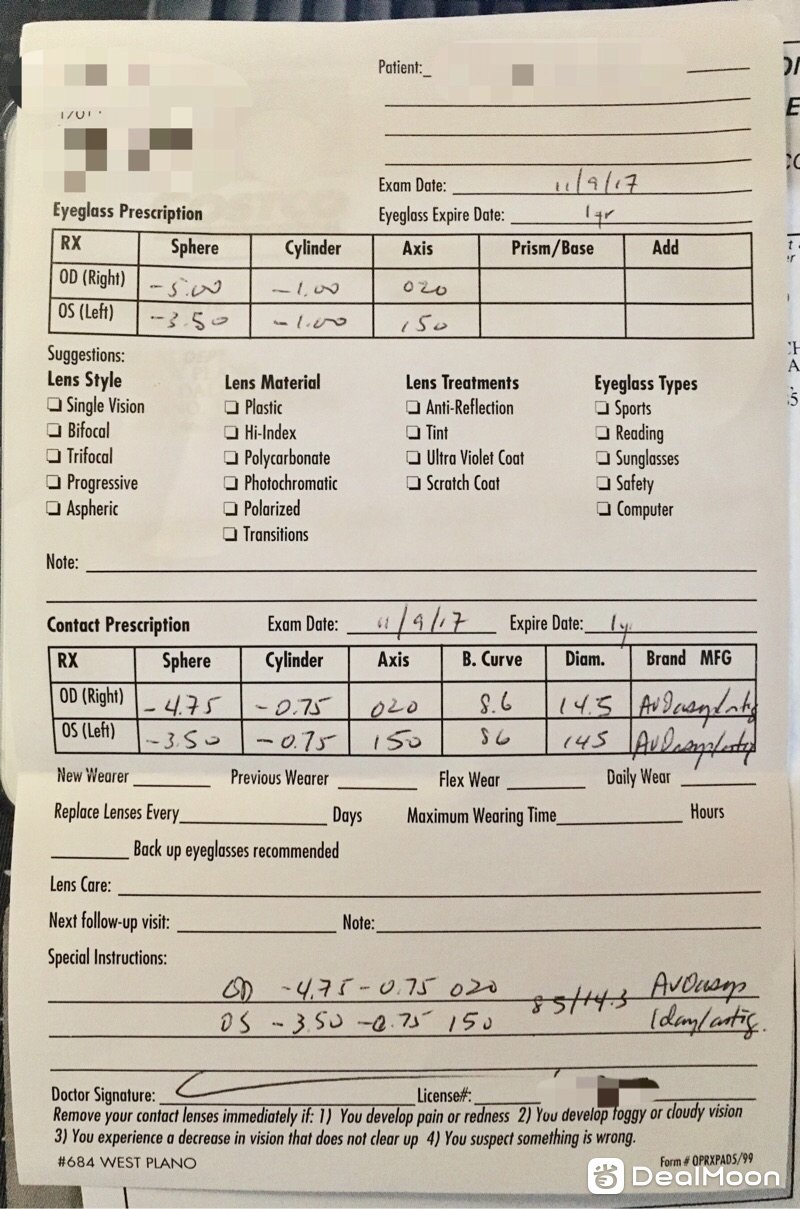 Patient:
Exam Date: 11/9/17
Eyeglass Prescription Eyeglass Expire Date: 1yr
RX Sphere Cylinder Axis Prism/Base Add
OD (Right) -5.00 -1.00 020
OS (Left) -3.50 -1.00 150
Suggestions:
Lens Style Lens Material Lens Treatments Eyeglass Types
Single Vision Plastic Anti-Reflection Sports
Bifocal Hi-Index Tint Reading
Trifocal Polycarbonate Ultra Violet Coat Sunglasses
Progressive Photochromatic Scratch Coat Safety
Aspheric Polarized Computer
Transitions
Note:
Contact Prescription Exam Date: 11/9/17 Expire Date: 1y
RX Sphere Cylinder Axis B. Curve Diam. Brand MFG
OD (Right) -4.75 -0.75 020 8.6 14.5
OS (Left) -3.50 -0.75 150 86 145
New Wearer Previous Wearer Flex Wear Daily Wear
Replace Lenses Every Days Maximum Wearing Time Hours
Back up eyeglasses recommended
Lens Care:
Next follow-up visit: Note:
Special Instructions:
OD -4.75 -0.75 020 85/14.3 AVOasys
OS -3.50 -0.75 150 1day/astig.
Doctor Signature: License#:
Remove your contact lenses immediately if: 1) You develop pain or redness 2) You develop foggy or cloudy vision
3) You experience a decrease in vision that does not clear up 4) You suspect something is wrong.
#684 WEST PLANO Form # OPRXPAD5/99
DealMoon